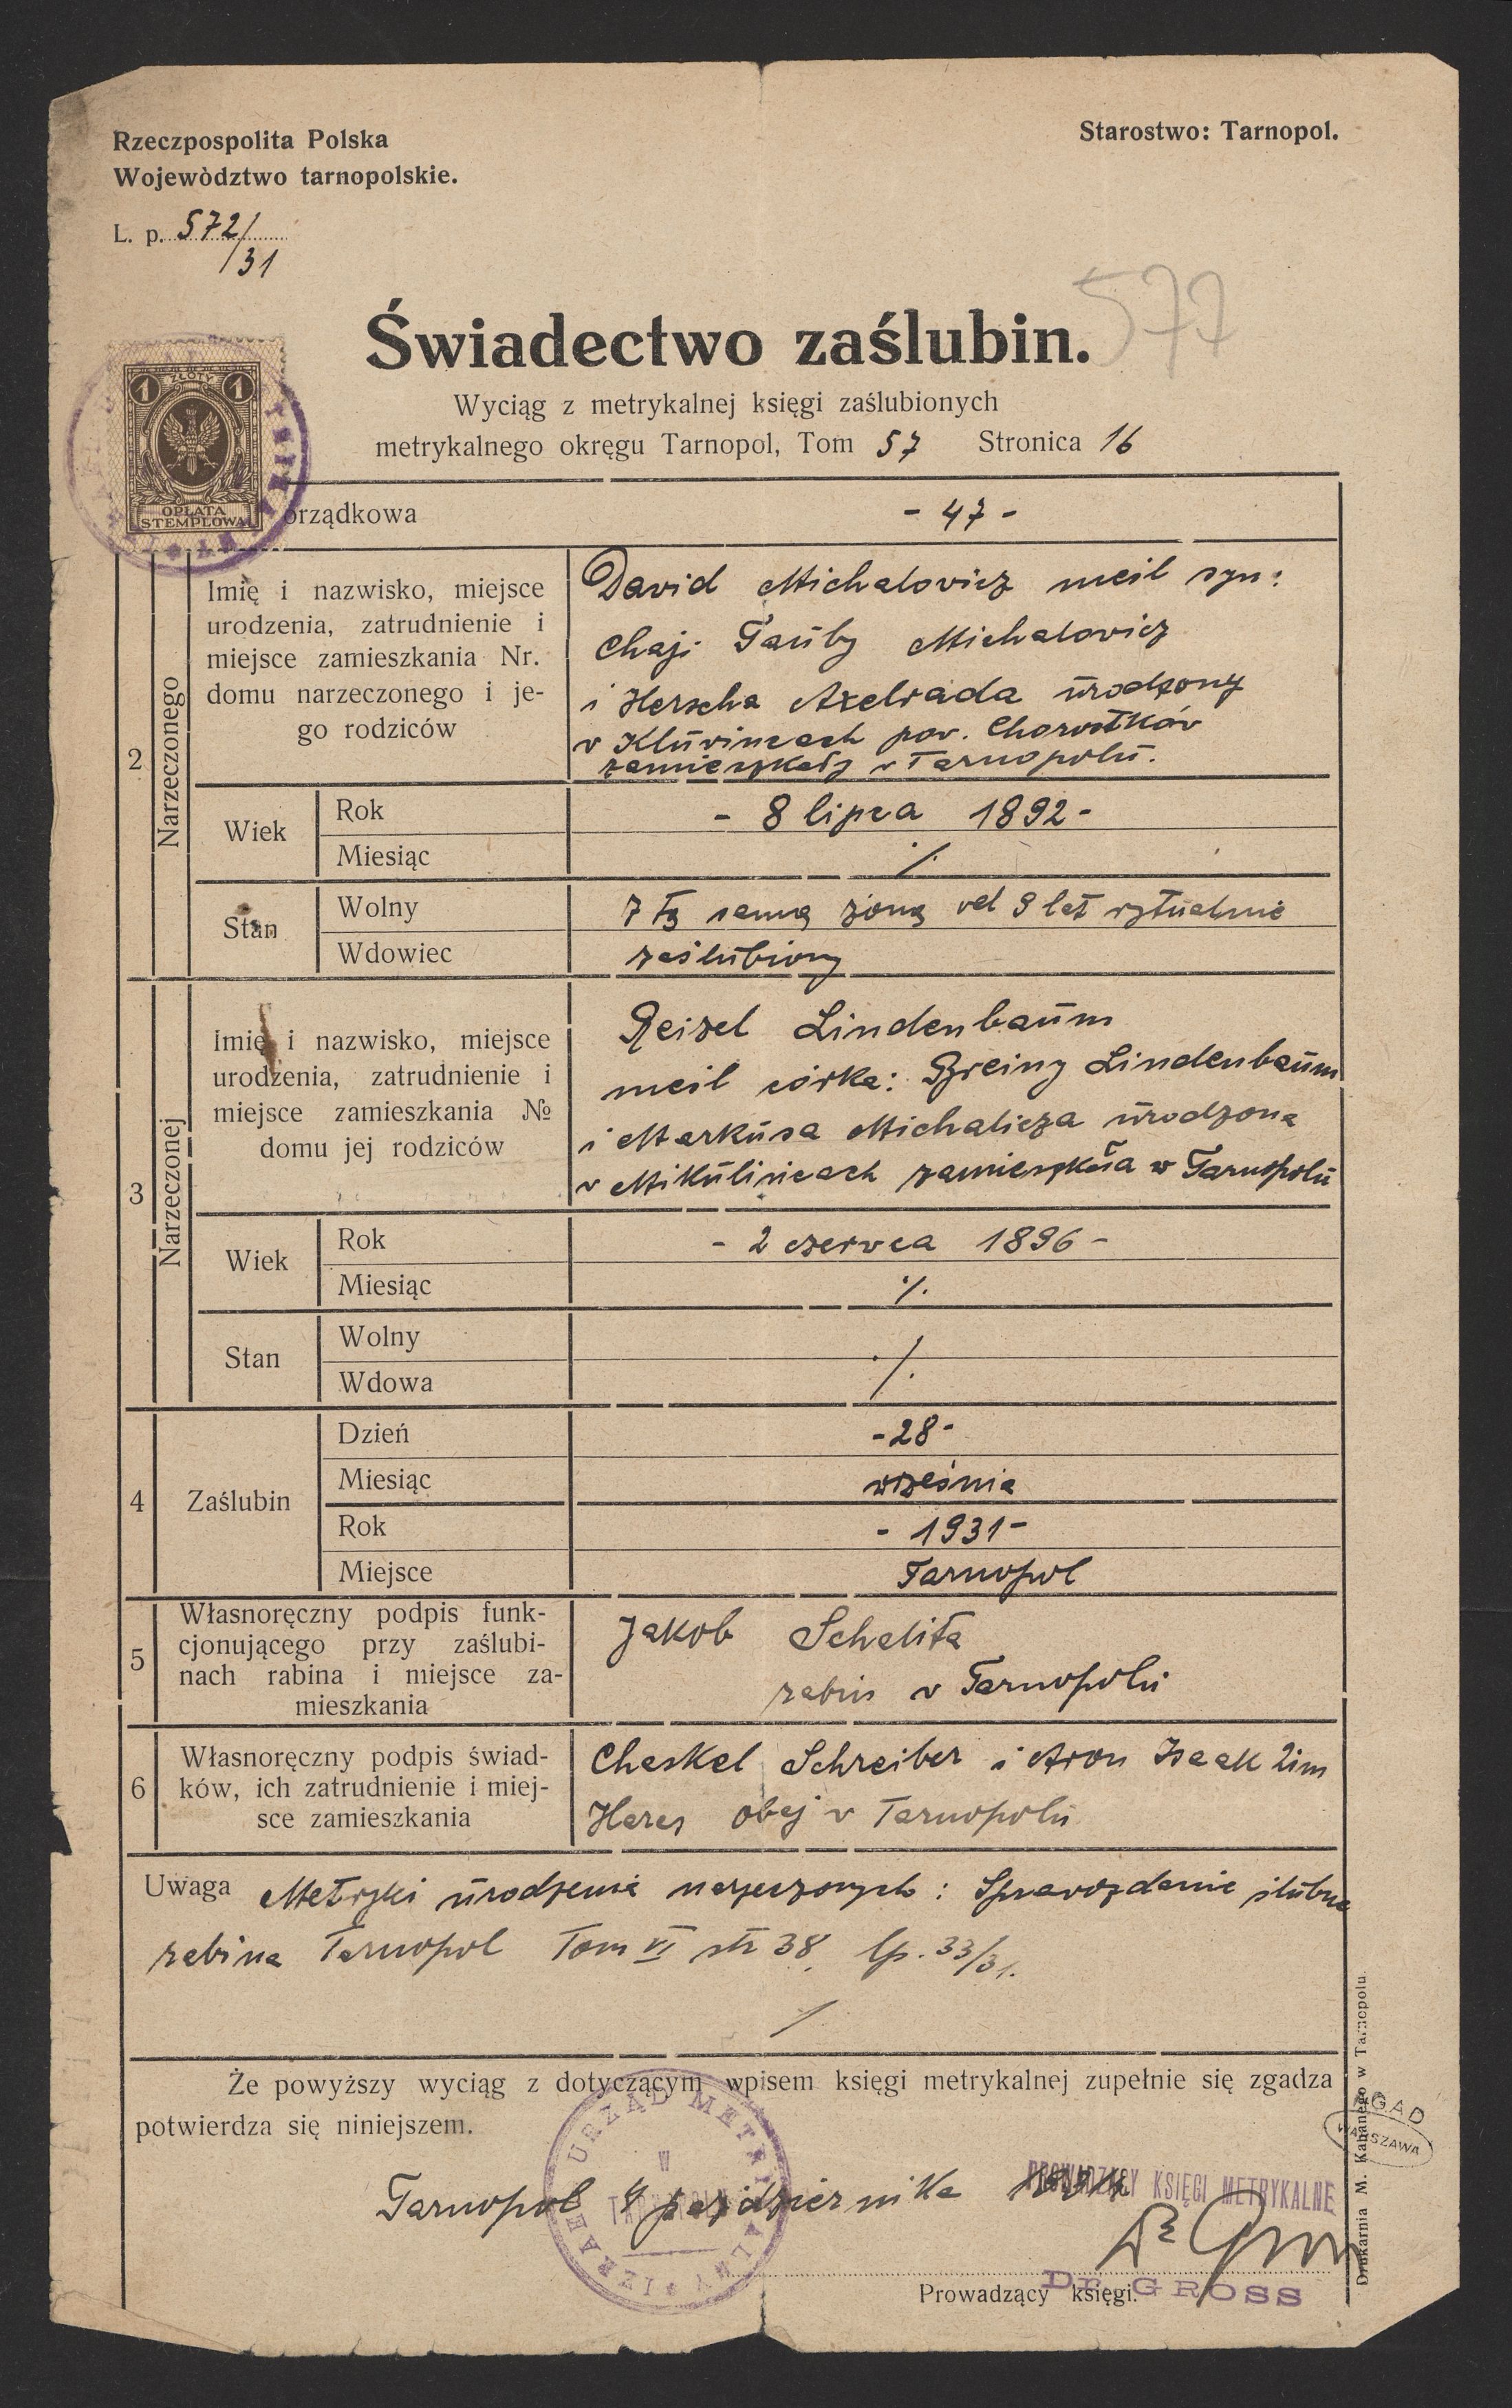 Rzeczpospolita Polska
Wojewòdztwo tarnopolskie.
Starostwo: Tarnopol.
L. p. 572/
/31
577
Świadectwo zaślubin.
Wyciąg z metrykalnej księgi zaślubionych
metrykalnego okręgu Tarnopol, Tom 57 Stronica 16
1 ZŁOTY 1
OPŁATA
STEMPLOWA
orządkowa
- 47 -
2
Narzeczonego
Imię i nazwisko, miejsce
urodzenia, zatrudnienie i
miejsce zamieszkania Nr.
domu narzeczonego i je-
go rodziców
David Michalovicz nieśl syn:
Chaji Taűby Michalovicz
i Herscha Axelrada űrodzony
v Klűvincach pov. Chorostków
zamieszkały v Tarnopolű.
Wiek
Rok
- 8 lipca 1892 -
Miesiąc
./.
Stan
Wolny
z tą samą żoną od 9 lat rytűalnie
Wdowiec
zaślűbiony
3
Narzeczonej
Imię i nazwisko, miejsce
urodzenia, zatrudnienie i
miejsce zamieszkania №
domu jej rodziców
Reizel Lindenbaűm
nieśl córka: Breiny Lindenbaűm
i Markűsa Michalicza űrodzona
v Mikűlińcach zamieszkała w Tarnopolű
Wiek
Rok
- 2 czervca 1896 -
Miesiąc
./.
Stan
Wolny
Wdowa
./.
4
Zaślubin
Dzień
- 28 -
Miesiąc
września
Rok
- 1931 -
Miejsce
Tarnopol
5
Własnoręczny podpis funk-
cjonującego przy zaślubi-
nach rabina i miejsce za-
mieszkania
Jakob Schalita
rabin v Tarnopolű
6
Własnoręczny podpis świad-
ków, ich zatrudnienie i miej-
sce zamieszkania
Chaskel Schreiber i Aron Isaak 2im
Heres obaj v Tarnopolű
Uwaga Metryki űrodzenia narzeczonych: Spravozdanie ślűbne
rabina Tarnopol Tom VI str 38, lp. 33/31.
Że powyższy wyciąg z dotyczącym wpisem księgi metrykalnej zupełnie się zgadza
potwierdza się niniejszem.
URZĄD METRYKALNY IZRAEL.
Tarnopol 4 października
PROWADZĄCY KSIĘGI METRYKALNE
Prowadzący księgi.
Dr. GROSS
AGAD
WARSZAWA
Drukarnia M. Kahanego w Tarnopolu.